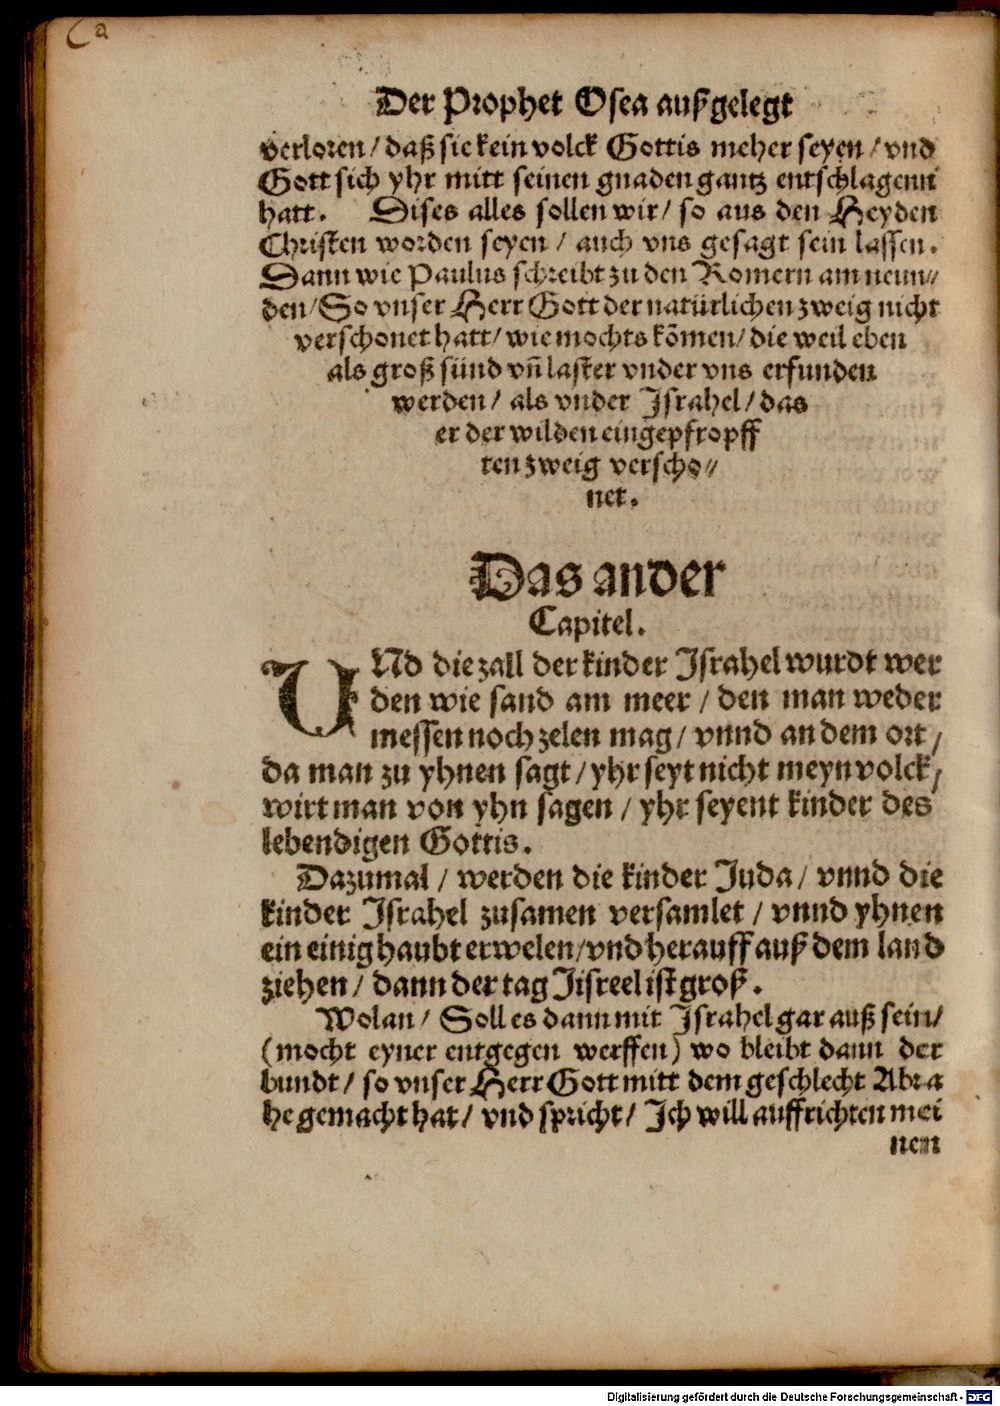 Ca
Der Prophet Osea außgelegt
verloren / daß sie kein volck Gottis meher seyen / vnd
Gott sich yhr mitt seinen gnaden gantz entschlagenn
hatt. Dises alles sollen wir / so aus den Heyden
Christen worden seyen / auch vns gesagt sein lassen.
Dann wie Paulus schreibt zu den Romern am neun⸗
den / So vnser Herr Gott der natürlichen zweig nicht
verschonet hatt / wie mochts kõmen / die weil eben
als groß sünd vñ laster vnder vns erfunden
werden / als vnder Israhel / das
er der wilden eingepfropff
ten zweig verscho⸗
net.
Das ander
Capitel.
VNd die zall der kinder Israhel wurdt wer
den wie sand am meer / den man weder
messen noch zelen mag / vnnd an dem ort /
da man zu yhnen sagt / yhr seyt nicht meyn volck /
wirt man von yhn sagen / yhr seyent kinder des
lebendigen Gottis.
Dazumal / werden die kinder Juda / vnnd die
kinder Israhel zusamen versamlet / vnnd yhnen
ein einig haubt erwelen / vnd herauff auß dem land
ziehen / dann der tag Jisreel ist groß.
Wolan / Soll es dann mit Israhel gar auß sein /
(mocht eyner entgegen werffen) wo bleibt dann der
bundt / so vnser Herr Gott mitt dem geschlecht Abra
he gemacht hat / vnd spricht / Ich will auffrichten mei
nen
Digitalisierung gefördert durch die Deutsche Forschungsgemeinschaft - DFG